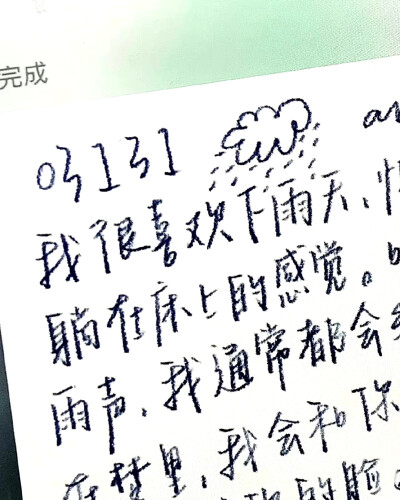 完成
我很喜欢下雨天、
躺在床上的感觉。
雨声、我通常都会
在梦里,我会和你
的脸